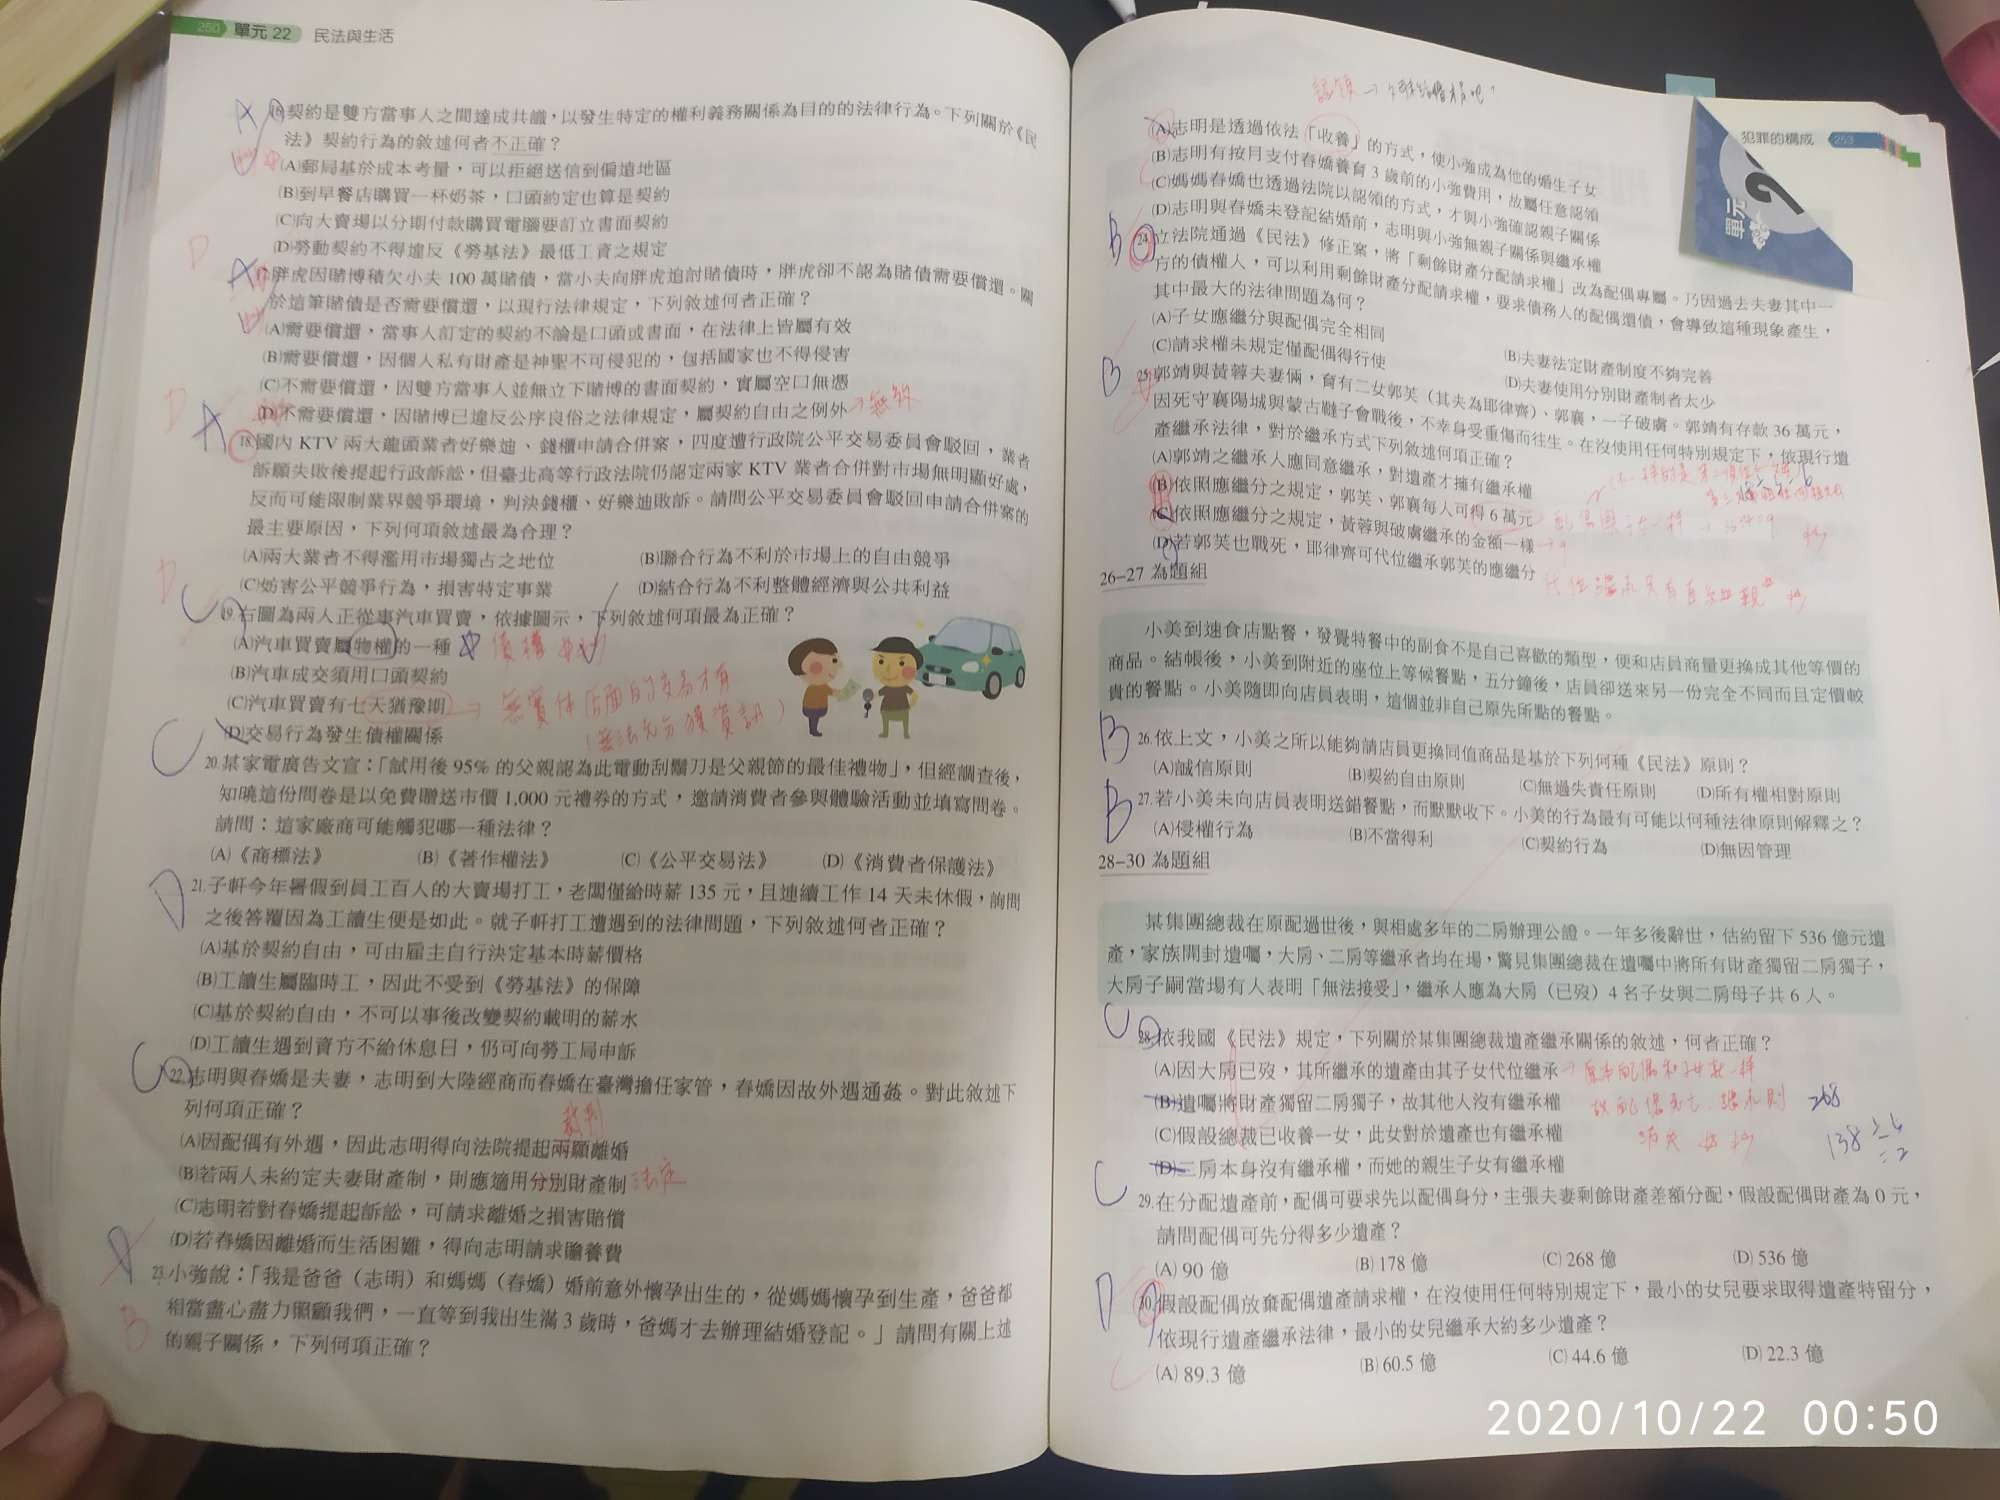 250 單元 22 民法與生活
契約是雙方當事人之間達成共識，以發生特定的權利義務關係為目的的法律行為。下列關於《民
法》契約行為的敘述何者不正確？
(A)郵局基於成本考量，可以拒絕送信到偏遠地區
(B)到早餐店購買一杯奶茶，口頭約定也算是契約
(C)向大賣場以分期付款購買電腦要訂立書面契約
(D)勞動契約不得違反《勞基法》最低工資之規定
胖虎因賭博積欠小夫 100 萬賭債，當小夫向胖虎追討賭債時，胖虎卻不認為賭債需要償還。關
於這筆賭債是否需要償還，以現行法律規定，下列敘述何者正確？
(A)需要償還，當事人訂定的契約不論是口頭或書面，在法律上皆屬有效
(B)需要償還，因個人私有財產是神聖不可侵犯的，包括國家也不得侵害
(C)不需要償還，因雙方當事人並無立下賭博的書面契約，實屬空口無憑
(D)不需要償還，因賭博已違反公序良俗之法律規定，屬契約自由之例外→無效
18.國內 KTV 兩大龍頭業者好樂迪、錢櫃申請合併案，四度遭行政院公平交易委員會駁回，業者
訴願失敗後提起行政訴訟，但臺北高等行政法院仍認定兩家 KTV 業者合併對市場無明顯好處，
反而可能限制業界競爭環境，判決錢櫃、好樂迪敗訴。請問公平交易委員會駁回申請合併案的
最主要原因，下列何項敘述最為合理？
(A)兩大業者不得濫用市場獨占之地位 (B)聯合行為不利於市場上的自由競爭
(C)妨害公平競爭行為，損害特定事業 (D)結合行為不利整體經濟與公共利益
19.右圖為兩人正從事汽車買賣，依據圖示，下列敘述何項最為正確？
(A)汽車買賣屬物權的一種 債權
(B)汽車成交須用口頭契約
(C)汽車買賣有七天猶豫期 → 無實体店面的交易才有
(無法充分獲資訊)
(D)交易行為發生債權關係
20.某家電廣告文宣：「試用後 95% 的父親認為此電動刮鬍刀是父親節的最佳禮物」，但經調查後，
知曉這份問卷是以免費贈送市價 1,000 元禮券的方式，邀請消費者參與體驗活動並填寫問卷。
請問：這家廠商可能觸犯哪一種法律？
(A)《商標法》 (B)《著作權法》 (C)《公平交易法》 (D)《消費者保護法》
21.子軒今年暑假到員工百人的大賣場打工，老闆僅給時薪 135 元，且連續工作 14 天未休假，詢問
之後答覆因為工讀生便是如此。就子軒打工遭遇到的法律問題，下列敘述何者正確？
(A)基於契約自由，可由雇主自行決定基本時薪價格
(B)工讀生屬臨時工，因此不受到《勞基法》的保障
(C)基於契約自由，不可以事後改變契約載明的薪水
(D)工讀生遇到資方不給休息日，仍可向勞工局申訴
22.志明與春嬌是夫妻，志明到大陸經商而春嬌在臺灣擔任家管，春嬌因故外遇通姦。對此敘述下
列何項正確？
裁判
(A)因配偶有外遇，因此志明得向法院提起兩願離婚
(B)若兩人未約定夫妻財產制，則應適用分別財產制 法定
(C)志明若對春嬌提起訴訟，可請求離婚之損害賠償
(D)若春嬌因離婚而生活困難，得向志明請求贍養費
23.小強說：「我是爸爸（志明）和媽媽（春嬌）婚前意外懷孕出生的，從媽媽懷孕到生產，爸爸都
相當盡心盡力照顧我們，一直等到我出生滿 3 歲時，爸媽才去辦理結婚登記。」請問有關上述
的親子關係，下列何項正確？
犯罪的構成 253
單元
(A)志明是透過依法「收養」的方式，使小強成為他的婚生子女
(B)志明有按月支付春嬌養育 3 歲前的小強費用，故屬任意認領
(C)媽媽春嬌也透過法院以認領的方式，才與小強確認親子關係
(D)志明與春嬌未登記結婚前，志明與小強無親子關係與繼承權
24.立法院通過《民法》修正案，將「剩餘財產分配請求權」改為配偶專屬。乃因過去夫妻其中一
方的債權人，可以利用剩餘財產分配請求權，要求債務人的配偶還債，會導致這種現象產生，
其中最大的法律問題為何？
(A)子女應繼分與配偶完全相同 (B)夫妻法定財產制度不夠完善
(C)請求權未規定僅配偶得行使 (D)夫妻使用分別財產制者太少
25.郭靖與黃蓉夫妻倆，育有二女郭芙（其夫為耶律齊）、郭襄，一子破虜。郭靖有存款 36 萬元，
因死守襄陽城與蒙古韃子會戰後，不幸身受重傷而往生。在沒使用任何特別規定下，依現行遺
產繼承法律，對於繼承方式下列敘述何項正確？
(A)郭靖之繼承人應同意繼承，對遺產才擁有繼承權
(B)依照應繼分之規定，郭芙、郭襄每人可得 6 萬元
(C)依照應繼分之規定，黃蓉與破虜繼承的金額一樣
(D)若郭芙也戰死，耶律齊可代位繼承郭芙的應繼分
26–27 為題組
小美到速食店點餐，發覺特餐中的副食不是自己喜歡的類型，便和店員商量更換成其他等價的
商品。結帳後，小美到附近的座位上等候餐點，五分鐘後，店員卻送來另一份完全不同而且定價較
貴的餐點。小美隨即向店員表明，這個並非自己原先所點的餐點。
26.依上文，小美之所以能夠請店員更換同值商品是基於下列何種《民法》原則？
(A)誠信原則 (B)契約自由原則 (C)無過失責任原則 (D)所有權相對原則
27.若小美未向店員表明送錯餐點，而默默收下。小美的行為最有可能以何種法律原則解釋之？
(A)侵權行為 (B)不當得利 (C)契約行為 (D)無因管理
28–30 為題組
某集團總裁在原配過世後，與相處多年的二房辦理公證。一年多後辭世，估約留下 536 億元遺
產，家族開封遺囑，大房、二房等繼承者均在場，驚見集團總裁在遺囑中將所有財產獨留二房獨子，
大房子嗣當場有人表明「無法接受」，繼承人應為大房（已歿）4 名子女與二房母子共 6 人。
28.依我國《民法》規定，下列關於某集團總裁遺產繼承關係的敘述，何者正確？
(A)因大房已歿，其所繼承的遺產由其子女代位繼承
(B)遺囑將財產獨留二房獨子，故其他人沒有繼承權 268
(C)假設總裁已收養一女，此女對於遺產也有繼承權
(D)二房本身沒有繼承權，而她的親生子女有繼承權
29.在分配遺產前，配偶可要求先以配偶身分，主張夫妻剩餘財產差額分配，假設配偶財產為 0 元，
請問配偶可先分得多少遺產？
(A) 90 億 (B) 178 億 (C) 268 億 (D) 536 億
30.假設配偶放棄配偶遺產請求權，在沒使用任何特別規定下，最小的女兒要求取得遺產特留分，
依現行遺產繼承法律，最小的女兒繼承大約多少遺產？
(A) 89.3 億 (B) 60.5 億 (C) 44.6 億 (D) 22.3 億
2020/10/22 00:50